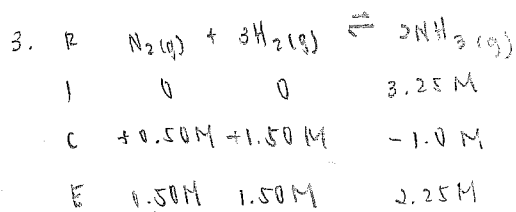 3. R N₂(g) + 3H₂(g) ⇌ 2NH₃(g)
I 0 0 3.25 M
C +0.50M +1.50 M -1.0 M
E 0.50M 1.50M 2.25M